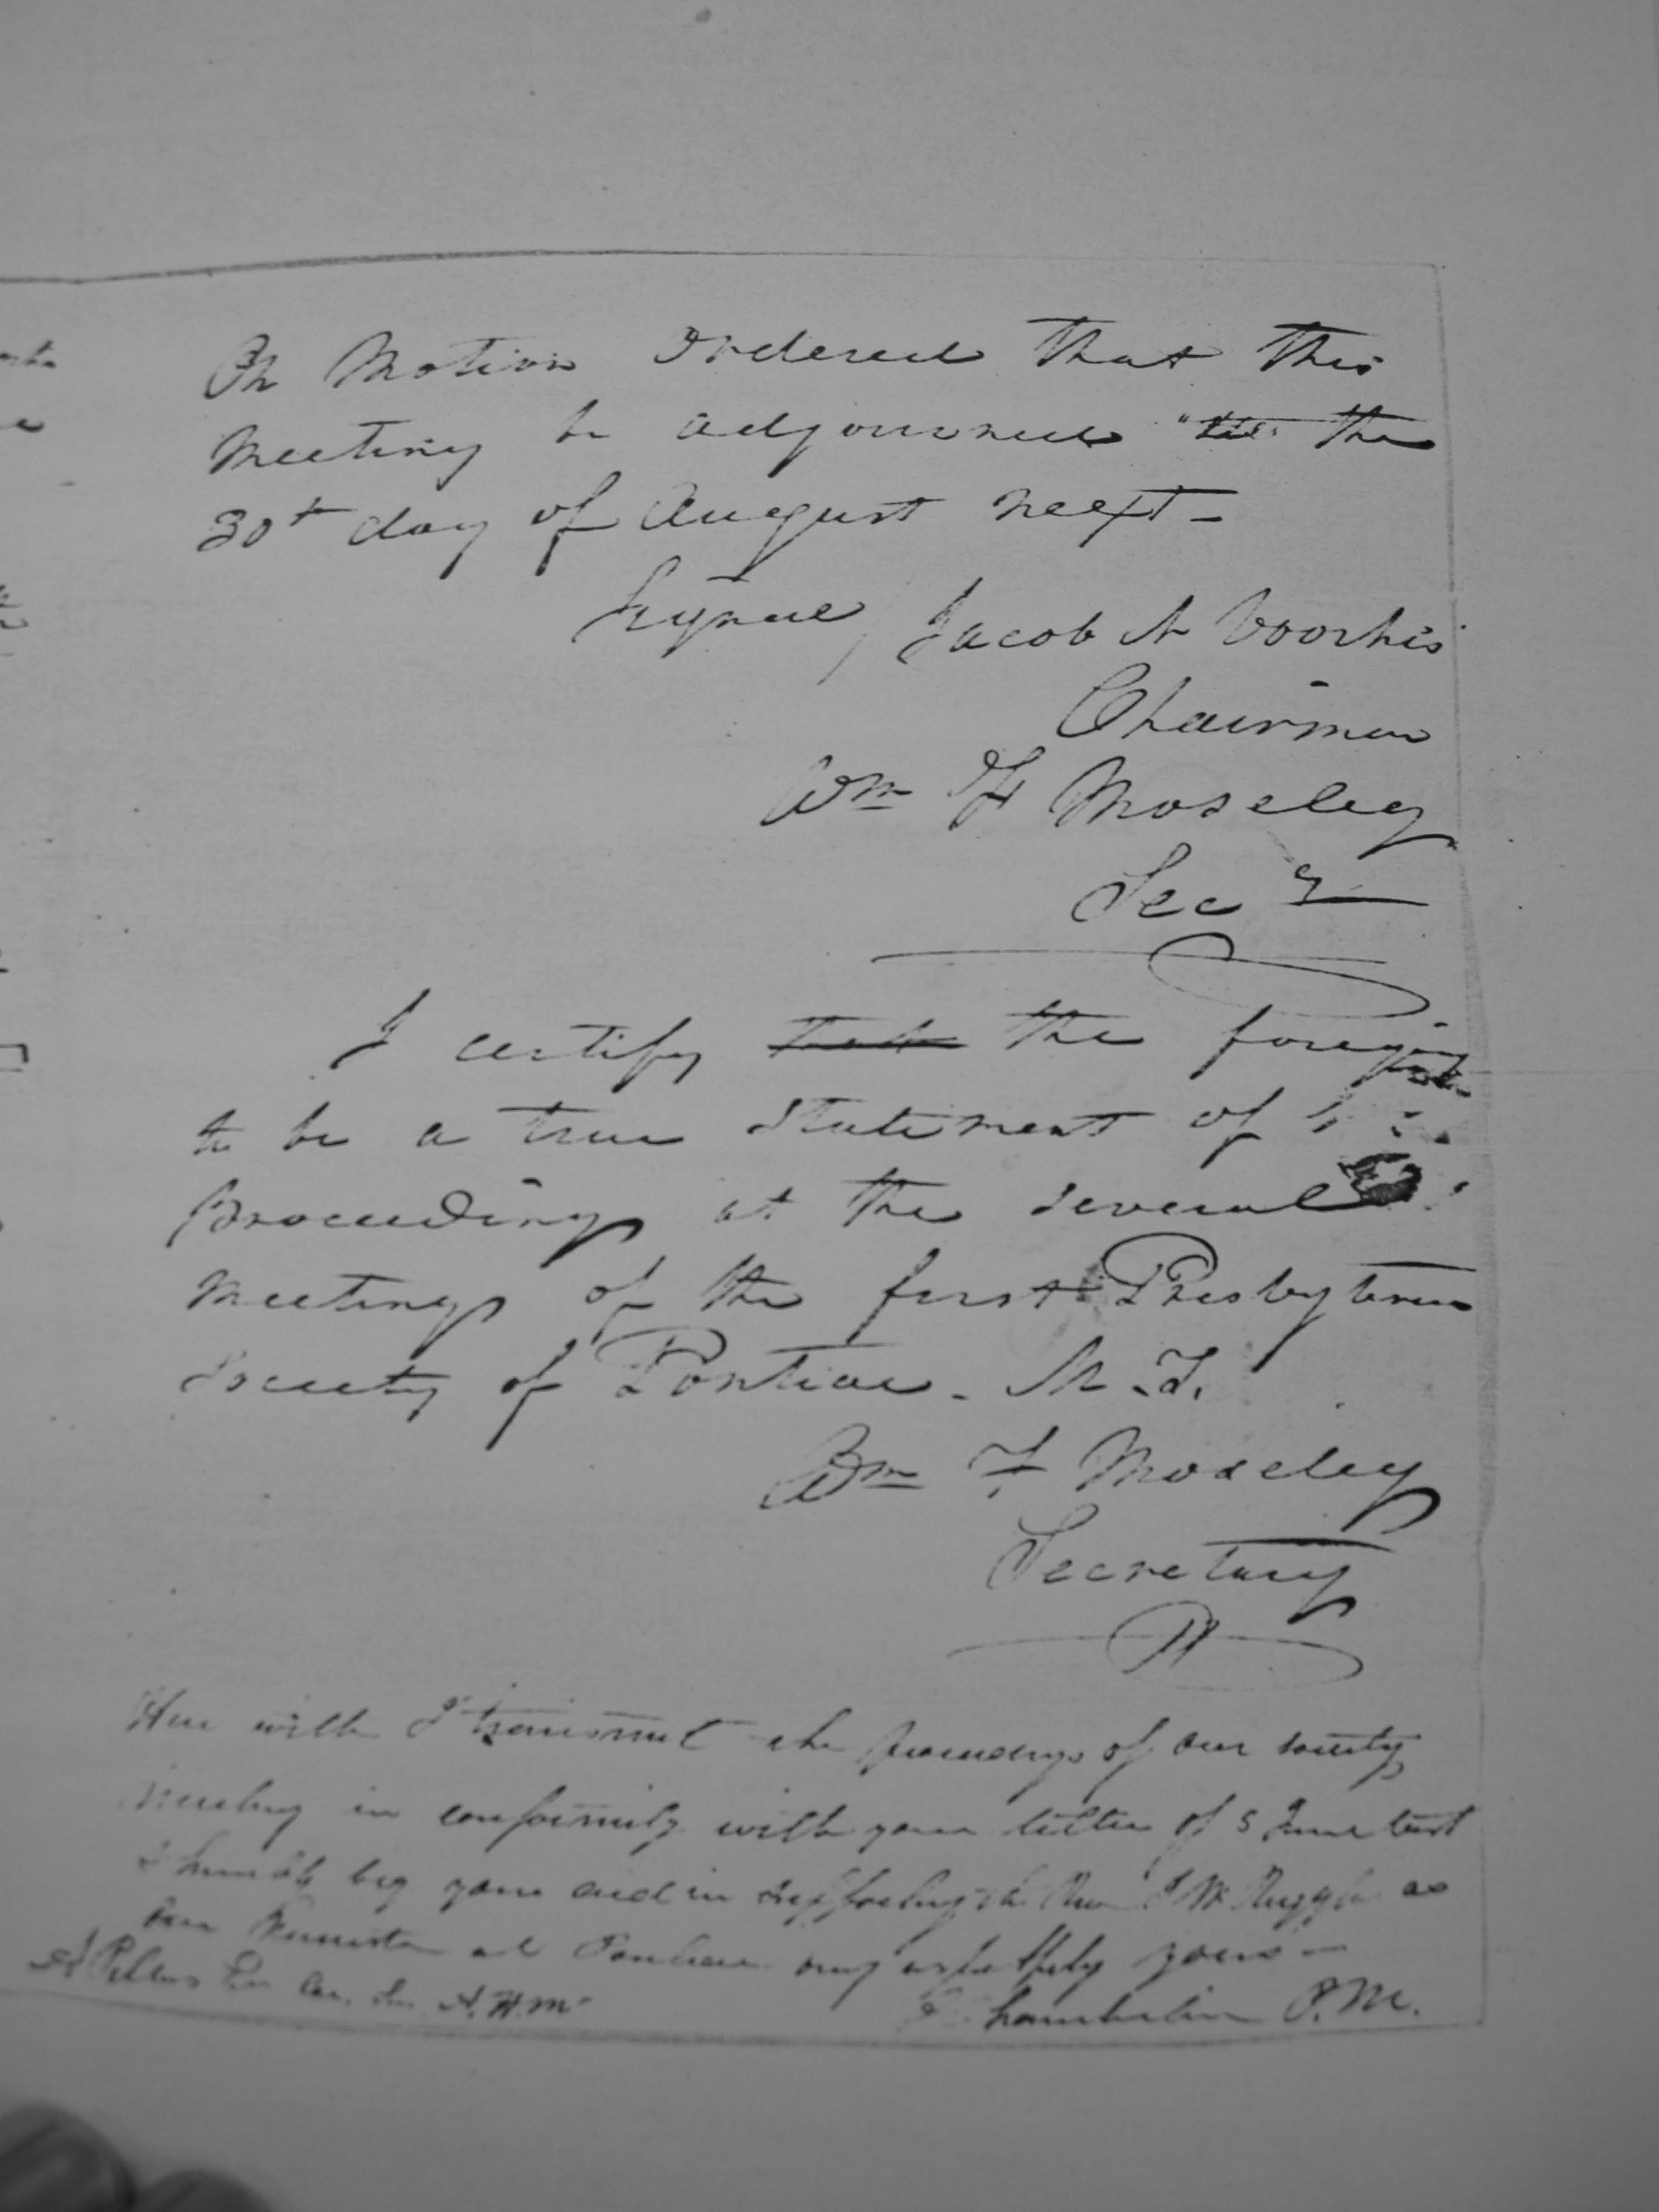 On Motion Ordered that this
meeting be adjourned "till" the
30th day of August next -
Signed, Jacob N Voorhis
Chairman
Wm F Moseley
Secy
I certify that the foregoing
to be a true statement of
Proceedings at the several
meetings of the first Presbyterian
Society of Pontiac - M.T.
Wm F Moseley
Secretary
Here with I transmit the proceedings of our society
meeting in conformity with your letter of 5 June last
I humbly beg your aid in supporting the Rev I W Ruggles as
our Minister at Pontiac
A Peters Cor. Sec A.H.M. Chamberlin P.M.